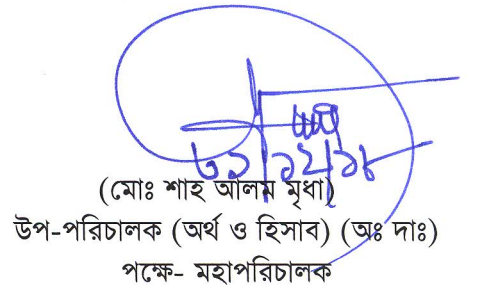 (মোঃ শাহ আলম মৃধা)
উপ-পরিচালক (অর্থ ও হিসাব) (অঃ দাঃ)
পক্ষে- মহাপরিচালক